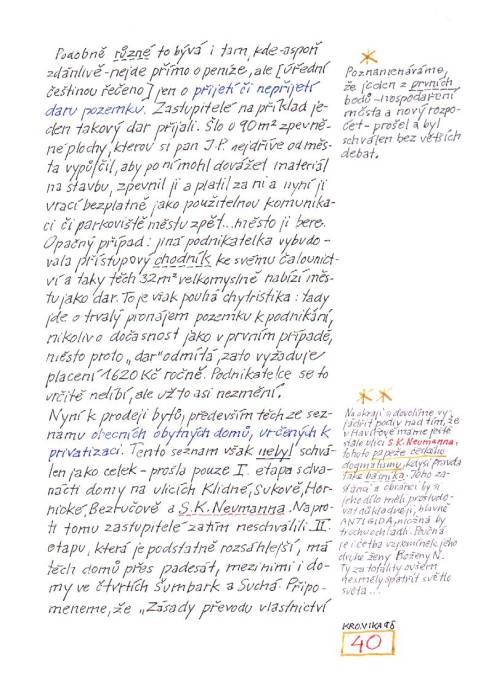 Podobně různé to bývá i tam, kde aspoň
zdánlivě nejde přímo o peníze, ale [úřední
češtinou řečeno] jen o přijetí či nepřijetí
daru pozemku. Zastupitelé na příklad je-
den takový dar přijali. Šlo o 90m² zpevně-
né plochy, kterou si pan J.P. nejdříve od měs-
ta vypůjčil, aby po ní mohl dovážet materiál
na stavbu, zpevnil ji a platil za ni a nyní ji
vrací bezplatně jako použitelnou komunika-
ci či parkoviště městu zpět...město ji bere.
Opačný případ: jiná podnikatelka vybudo-
vala přístupový chodník ke svému čalounict-
ví a taky těch 32m² velkomyslně nabízí měs-
tu jako dar. To je však pouhá chytristika: tady
jde o trvalý pronájem pozemku k podnikání,
nikoliv o dočasnost jako v prvním případě,
město proto „dar" odmítá, zato vyžaduje
placení 1620 Kč ročně. Podnikatelce se to
určitě nelíbí, ale už to asi nezmění.
Nyní k prodeji bytů, především těch ze sez-
namu obecních obytných domů, určených k
privatizaci. Tento seznam však nebyl schvá-
len jako celek - prošla pouze I. etapa s dva-
nácti domy na ulicích Klidné, Sukově, Hor-
nické, Bezručově a S.K. Neumanna. Napro-
ti tomu zastupitelé zatím neschválili II.
etapu, která je podstatně rozsáhlejší, má
těch domů přes padesát, mezi nimi i do-
my ve čtvrtích Šumbark a Suchá. Připo-
meneme, že „Zásady převodu vlastnictví
*
Poznamenáváme,
že jeden z prvních
bodů - hospodaření
města a nový rozpo-
čet - prošel a byl
schválen bez větších
debat.
**
Na okraj si dovolíme vy-
jádřit podiv nad tím, že
v Havířově máme ještě
stále ulici S.K. Neumanna,
tohoto papeže českého
dogmatismu, kdysi pravda
také básníka. Jeho za-
stánci a obránci by si
jeho dílo měli prostudo-
vat důkladněji, hlavně
ANTIGIDA, možná by
trochu ochladli. Poučná
je i četba vzpomínek jeho
druhé ženy Boženy N.
Ty za totality ovšem
nesměly spatřit světlo
světa...!
KRONIKA 98
40